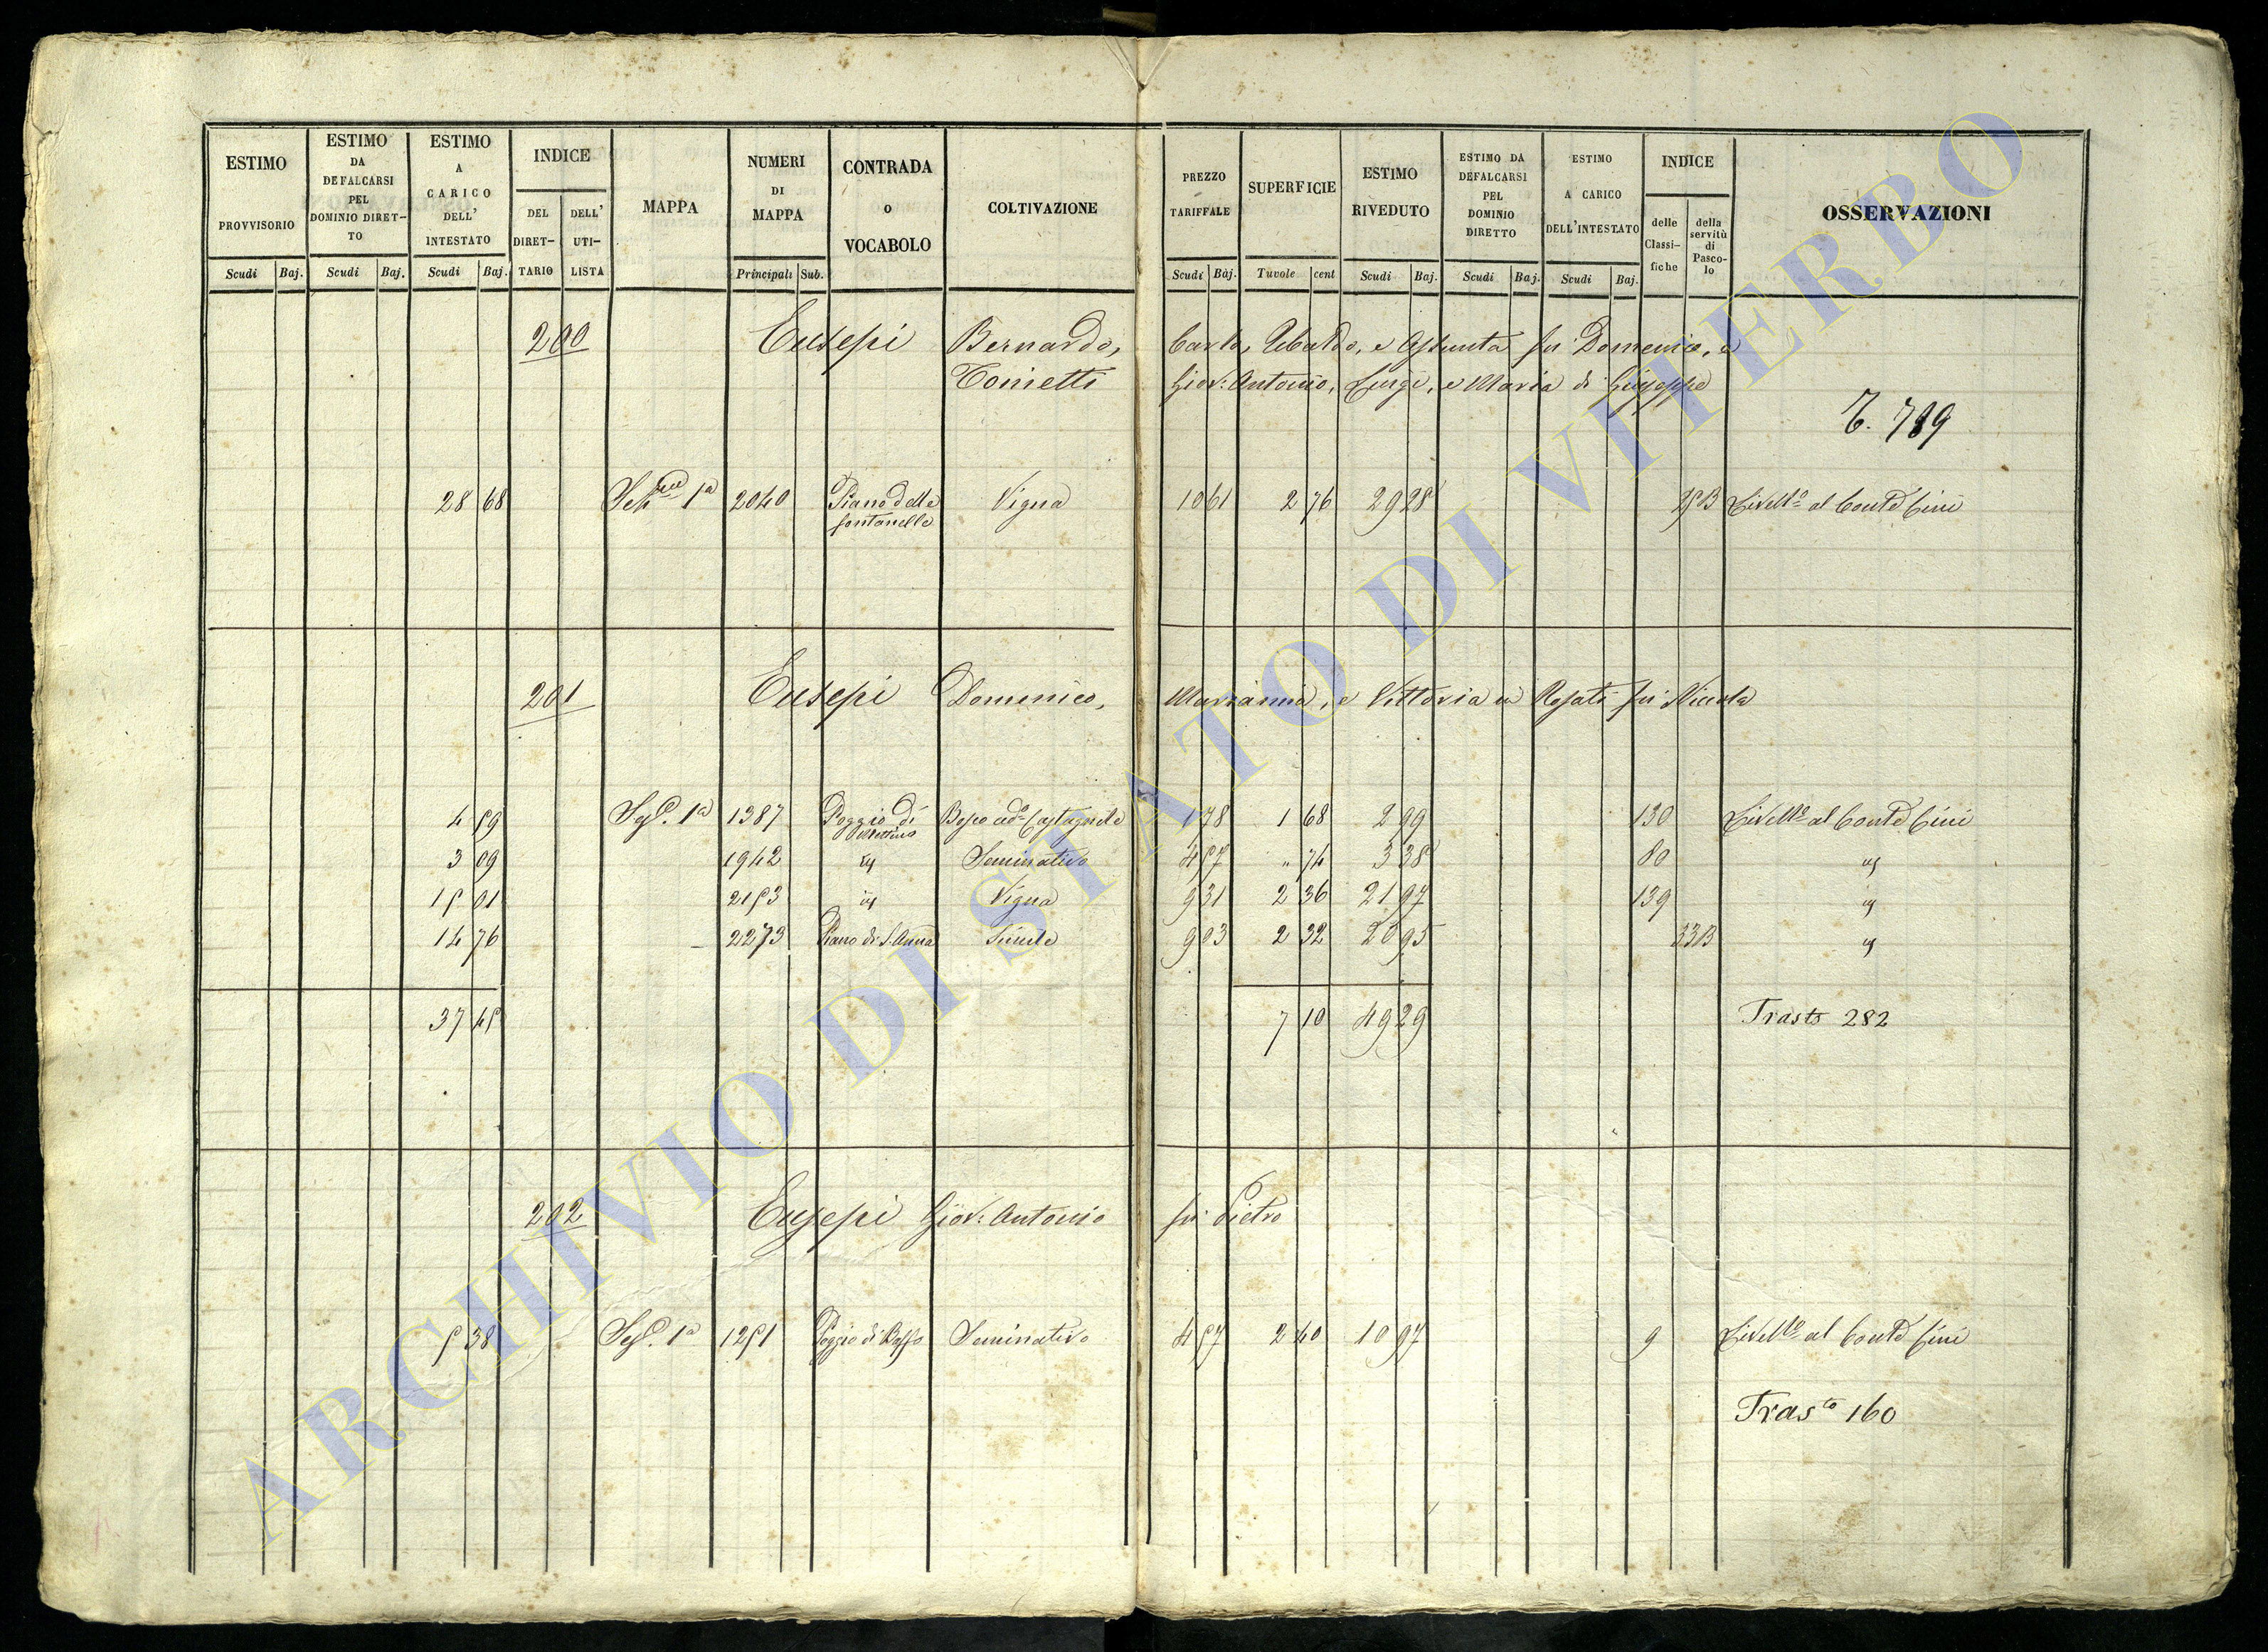 ESTIMO PROVVISORIO Scudi Baj.
ESTIMO DA DEFALCARSI PEL DOMINIO DIRET-TO Scudi Baj.
ESTIMO A CARICO DELL' INTESTATO Scudi Baj.
INDICE DEL DIRET-TARIO DELL' UTI-LISTA
MAPPA
NUMERI DI MAPPA Principali Sub.
CONTRADA o VOCABOLO
COLTIVAZIONE
PREZZO TARIFFALE Scudi Baj.
SUPERFICIE Tuvole cent
ESTIMO RIVEDUTO Scudi Baj.
ESTIMO DA DEFALCARSI PEL DOMINIO DIRETTO Scudi Baj.
ESTIMO A CARICO DELL'INTESTATO Scudi Baj.
INDICE delle Classi-fiche della servitù di Pasco-lo
OSSERVAZIONI
200 Eusepi Bernardo, Carlo, Ubaldo, e Assunta fu Domenico, e
Tonietti Giov: Antonio, Luigi, e Maria di Giuseppe
T. 789
28 68 1a 2040 Piano delle fontanelle Vigna 10 61 2 76 29 28 Livello al Conte Cini
201 Eusepi Domenico, Marianna, e Vittoria in Rosati fu Nicola
4 59 1a 1387 Poggio di Bosco ced. Castagnile 1 78 1 68 2 99 130 Livello al Conte Cini
3 09 1942 id Seminativo 4 57 " 74 3 38 80 id
15 01 2153 id Vigna 9 31 2 36 21 97 139 id
14 76 2273 Piano di S. Anna Simile 9 03 2 32 20 95 33B id
37 45 7 10 49 29 Trasto 282
202 Eusepi Giov: Antonio fu Pietro
5 38 1a 1251 Poggio di Seminativo 4 57 2 40 10 97 9 Livello al Conte Cini
Trasto 160
ARCHIVIO DI STATO DI VITERBO